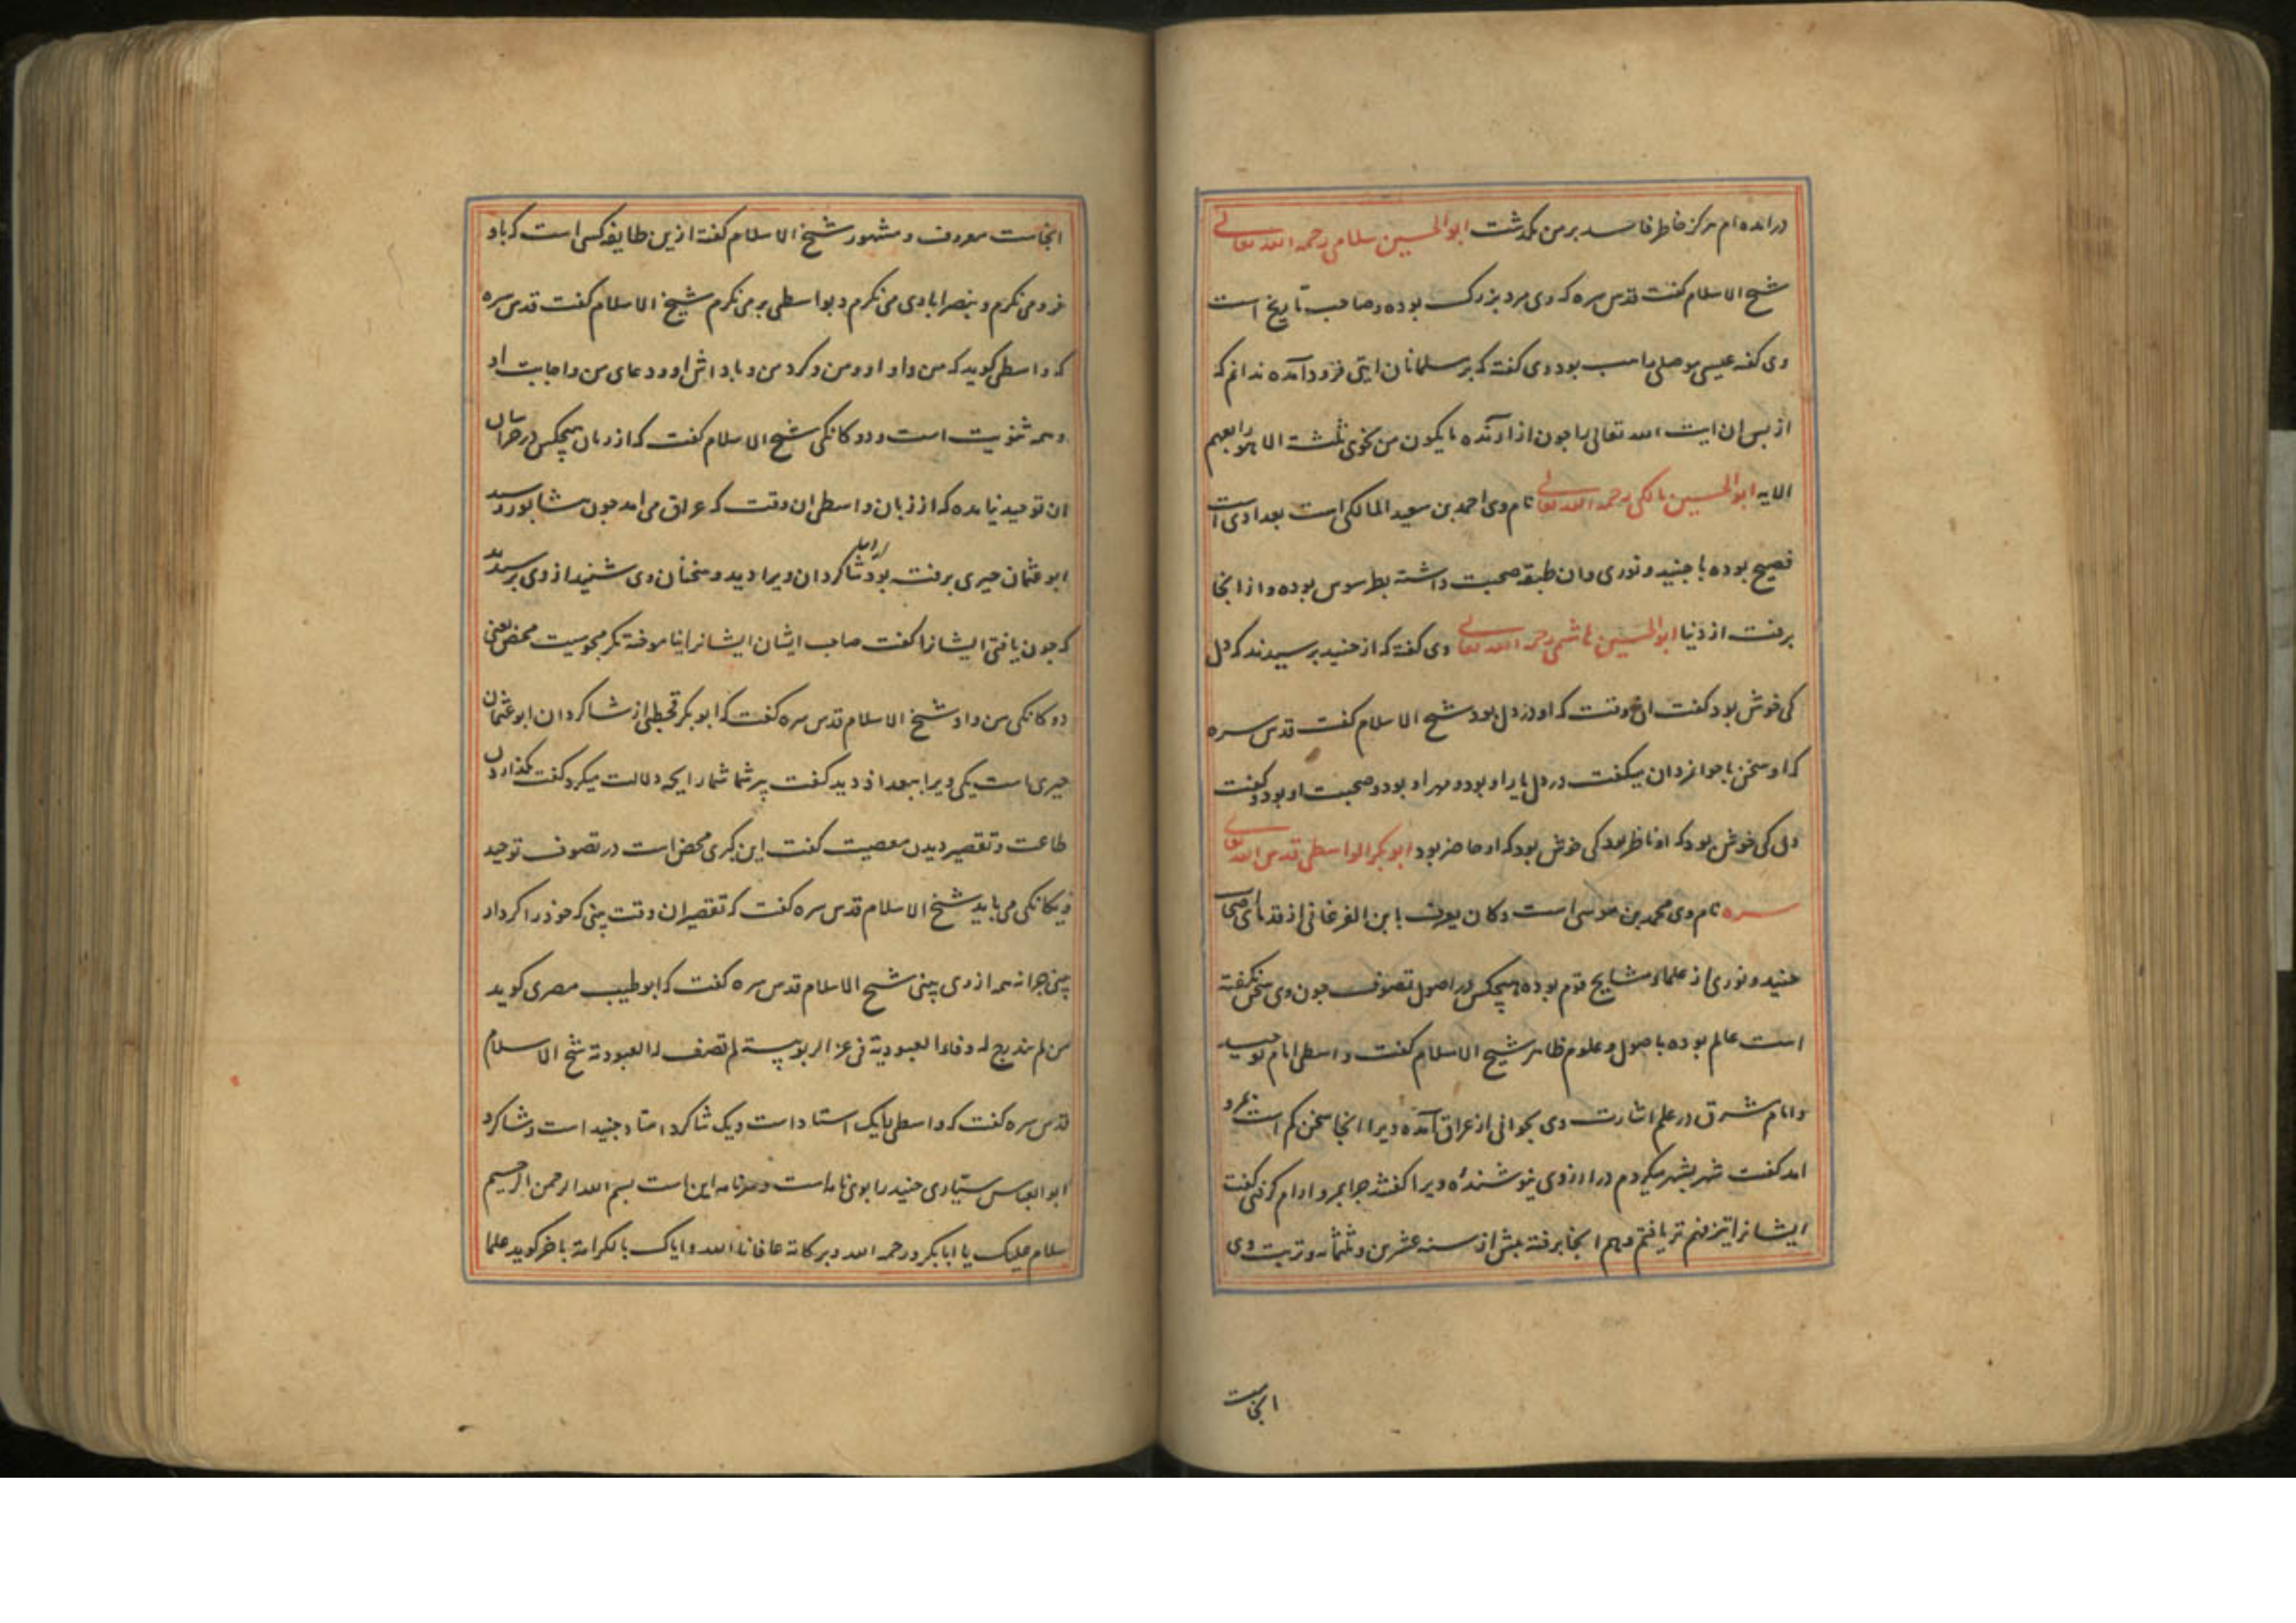 درامده ام هرکز خاطر فاسد بر من نکذشت ابوالحسین سلامی رحمه الله تعالی
شیخ الاسلام کفت قدس سره که وی مرد بزرک بوده و صاحب تاریخ است
وی کفته عیسی موصلی راهب بود وی کفته که بر مسلمانان ایتی فرود آمده ندانم که
از پس ان ایت الله تعالی را چون ازارنده ما یکون من نجوی ثلثة الا هو رابعهم
الایه ابوالحسین مالکی رحمه الله تعالی نام وی احمد بن سعید المالکی است بغدادی است
فصیح بوده با جنید و نوری و ان طبقه صحبت داشته بطرسوس بوده و از انجا
برفت از دنیا ابوالحسین هاشمی رحمه الله تعالی وی کفته که از جنید پرسیدند که دل
کی خوش بود کفت ان وقت که او در دل بود شیخ الاسلام کفت قدس سره
که او سخن با جوانمردان میکفت در دل یار او بود و مهر او بود و صحبت او بود و کفت
دل کی خوش بود که او ناظر بود کی خوش بود که او حاضر بود ابوبکر الواسطی قدس الله تعالی
سره نام وی محمد بن موسی است و کان یعرف بابن الفرغانی از قدمای اصحاب
جنید و نوری از علما و مشایخ قوم بوده هیچکس در اصول تصوف چون وی سخن نکفته
است عالم بوده باصول و علوم ظاهر شیخ الاسلام کفت واسطی امام توحید
و امام مشرق در علم اشارت وی بجوانی از عراق آمده ویرا انجا سخن کم است بمرو
امد کفت شهر بشهر میکردم در ارزوی نیوشنده ویرا کفتند چرا بمرو ارام کرفتی کفت
ایشانرا تیز فهم تر یافتم و هم انجا برفته بیش از سنه عشرین و ثلثمائه و تربت وی
انجاست
انجاست معروف و مشهور شیخ الاسلام کفته ازین طایفه کس است که باو
فرو می نکرم و بنصرابادی می نکرم و بواسطی بر می نکرم شیخ الاسلام کفت قدس سره
که واسطی کوید که من و او او و من و کرد من و پاداش او و دعای من و اجابت او
همه ثنویت است و دوکانکی شیخ الاسلام کفت که از زبان هیچکس در خراسان
ان توحید نیامده که از زبان واسطی ان وقت که عراق می امد چون بنشابور رسید
ابو عثمان حیری برفته بود شاکردان ویرا دید و سخنان وی شنید از وی پرسیدند
که چون یافتی ایشانرا کفت صاحب ایشان ایشانرا نیاموخته مکر مجوسیت محض یعنی
دوکانکی من و او شیخ الاسلام قدس سره کفت که ابوبکر قحطبی از شاکردان ابوعثمان
حیری است یکی ویرا ببغداد دید کفت پیر شما شما را بچه دلالت میکرد کفت بکذاردن
طاعت و تقصیر دیدن معصیت کفت این کبری محض است در تصوف توحید
و یکانکی می باید شیخ الاسلام قدس سره کفت که تقصیر ان وقت بینی که خود را کردار
بینی چرا نه همه از وی بینی شیخ الاسلام قدس سره کفت که ابوطیب مصری کوید
من لم یندرج له وفاء العبودیة فی عز الربوبیة لم تصف له العبودیة شیخ الاسلام
قدس سره کفت که واسطی با یک استاد است و یک شاکرد استاد جنید است و شاکرد
ابوالعباس سیاری جنید را بوی نامه است و سرنامه این است بسم الله الرحمن الرحیم
سلام علیک یا ابابکر و رحمه الله و برکاته عافانا الله و ایاک بالکرامة باخر کوید علما